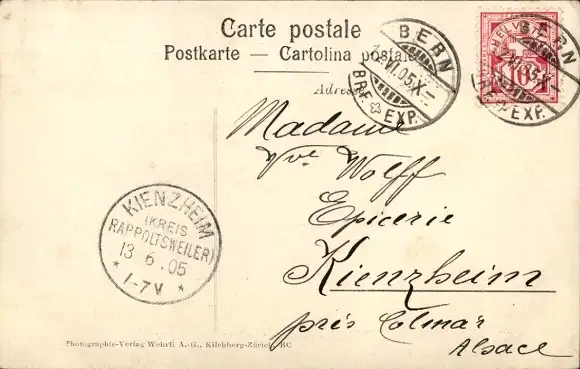 Carte postale
Postkarte — Cartolina postale
Adresse
BERN
VI.05.X-
BRF. EXP.
HELVETIA
10
BERN
VI.05.X-
EXP.
Madame
Vve Wolff
Epicerie
Kienzheim
près Colmar
Alsace
KIENZHEIM
(KREIS
RAPPOLTSWEILER)
13 6 .05
* 1-7V *
Photographie-Verlag Wehrli A.-G., Kilchberg-Zürich